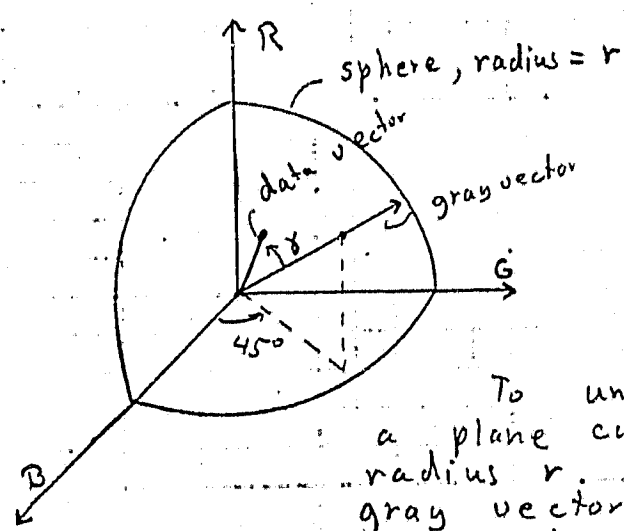 R
sphere, radius = r
data vector
gray vector
γ
G
45°
B
To un
a plane cu
radius r.
gray vector